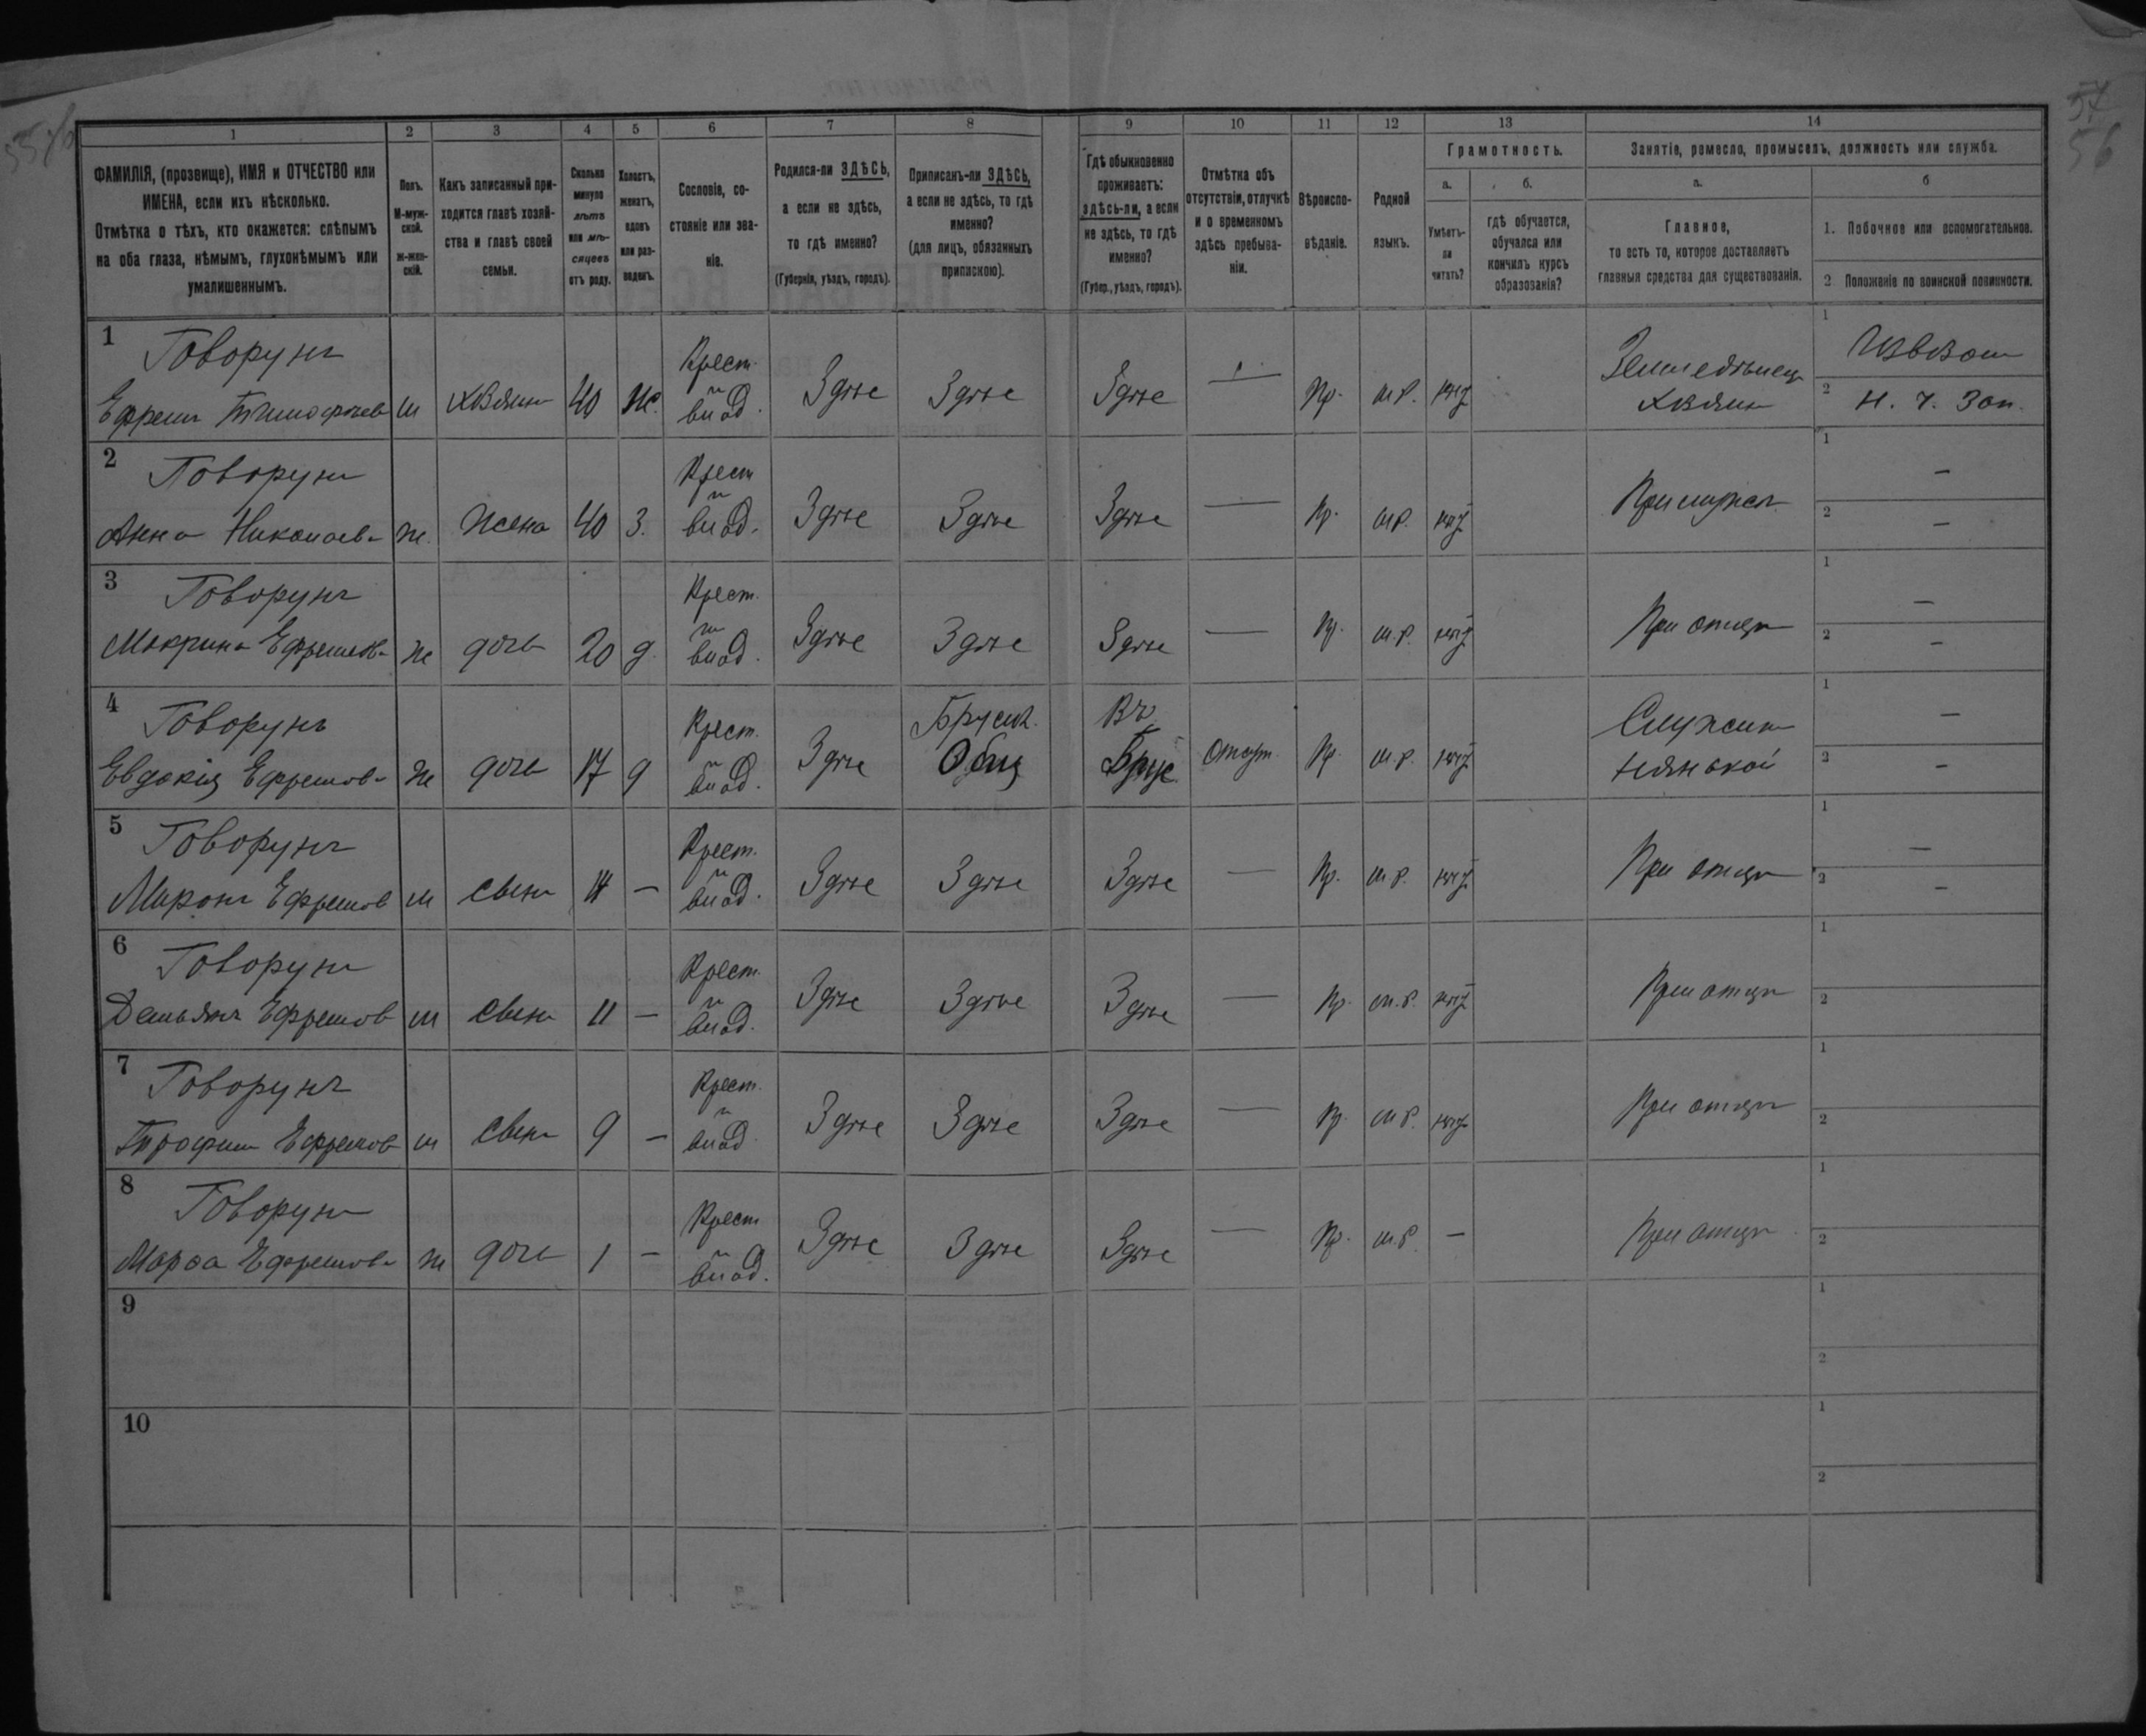 1 2 3 4 5 6 7 8 9 10 11 12 13 14
ФАМИЛІЯ, (прозвище), ИМЯ и ОТЧЕСТВО или
ИМЕНА, если ихъ нѣсколько.
Отмѣтка о тѣхъ, кто окажется: слѣпымъ
на оба глаза, нѣмымъ, глухонѣмымъ или
умалишеннымъ.
Полъ.
М-муж-
ской.
Ж-жен-
скій.
Какъ записанный при-
ходится главѣ хозяй-
ства и главѣ своей
семьи.
Сколько
минуло
лѣтъ
или мѣ-
сяцевъ
отъ роду.
Холостъ,
женатъ,
вдовъ
или раз-
веденъ.
Сословіе, со-
стояніе или зва-
ніе.
Родился-ли ЗДѢСЬ,
а если не здѣсь,
то гдѣ именно?
(Губернія, уѣздъ, городъ).
Приписанъ-ли ЗДѢСЬ,
а если не здѣсь, то гдѣ
именно?
(для лицъ, обязанныхъ
припискою).
Гдѣ обыкновенно
проживаетъ:
здѣсь-ли, а если
не здѣсь, то гдѣ
именно?
(Губер., уѣздъ, городъ).
Отмѣтка объ
отсутствіи, отлучкѣ
и о временномъ
здѣсь пребыва-
ніи.
Вѣроиспо-
вѣданіе.
Родной
языкъ.
Грамотность.
а.
Умѣетъ-
ли
читать?
б.
гдѣ обучается,
обучался или
кончилъ курсъ
образованія?
Занятіе, ремесло, промыселъ, должность или служба.
а.
Главное,
то есть то, которое доставляетъ
главныя средства для существованія.
б
1. Побочное или вспомогательное.
2 Положеніе по воинской повинности.
1 Говорунъ
Ефремъ Тимофѣев м хозяинъ 40 ж. Крест. и влад. Здѣсе Здѣсе Здѣсе — Пр. м.р. нѣтъ Земледѣлецъ Хозяин
1 Извозом
2 Н. Ч. Зап.
2 Говорун
Анна Николаева ж. жена 40 З. Крест и влад. Здѣсе Здѣсе Здѣсе — Пр. м.р. нѣтъ При мужѣ
1 —
2 —
3 Говорунъ
Макрина Ефремова ж дочь 20 д. Крест. и влад. Здѣсе Здѣсе Здѣсе — Пр. м.р. нѣтъ При отцѣ
1 —
2 —
4 Говорунъ
Евдокія Ефремова ж дочь 17 д Крест. и влад. Здѣсе Брусил. Общ Въ Брус Пр. м.р. нѣтъ Служит нянькой
1 —
2 —
5 Говорунъ
Миронъ Ефремов м сынъ 14 — Крест. и влад. Здѣсе Здѣсе Здѣсе — Пр. м.р. нѣтъ При отцѣ
1 —
2 —
6 Говорун
Демьянъ Ефремов м сынъ 11 — Крест. и влад. Здѣсе Здѣсе Здѣсе — Пр. м.р. нѣтъ При отцѣ
1
2
7 Говорунъ
Трофим Ефремов м сынъ 9 — Крест. и влад Здѣсе Здѣсе Здѣсе — Пр. м.р. нѣтъ При отцѣ
1
2
8 Говорун
Марѳа Ефремова ж дочь 1 — Крест и влад. Здѣсе Здѣсе Здѣсе — Пр. м.р. — При отцѣ
1
2
9
1
2
10
1
2
57
56